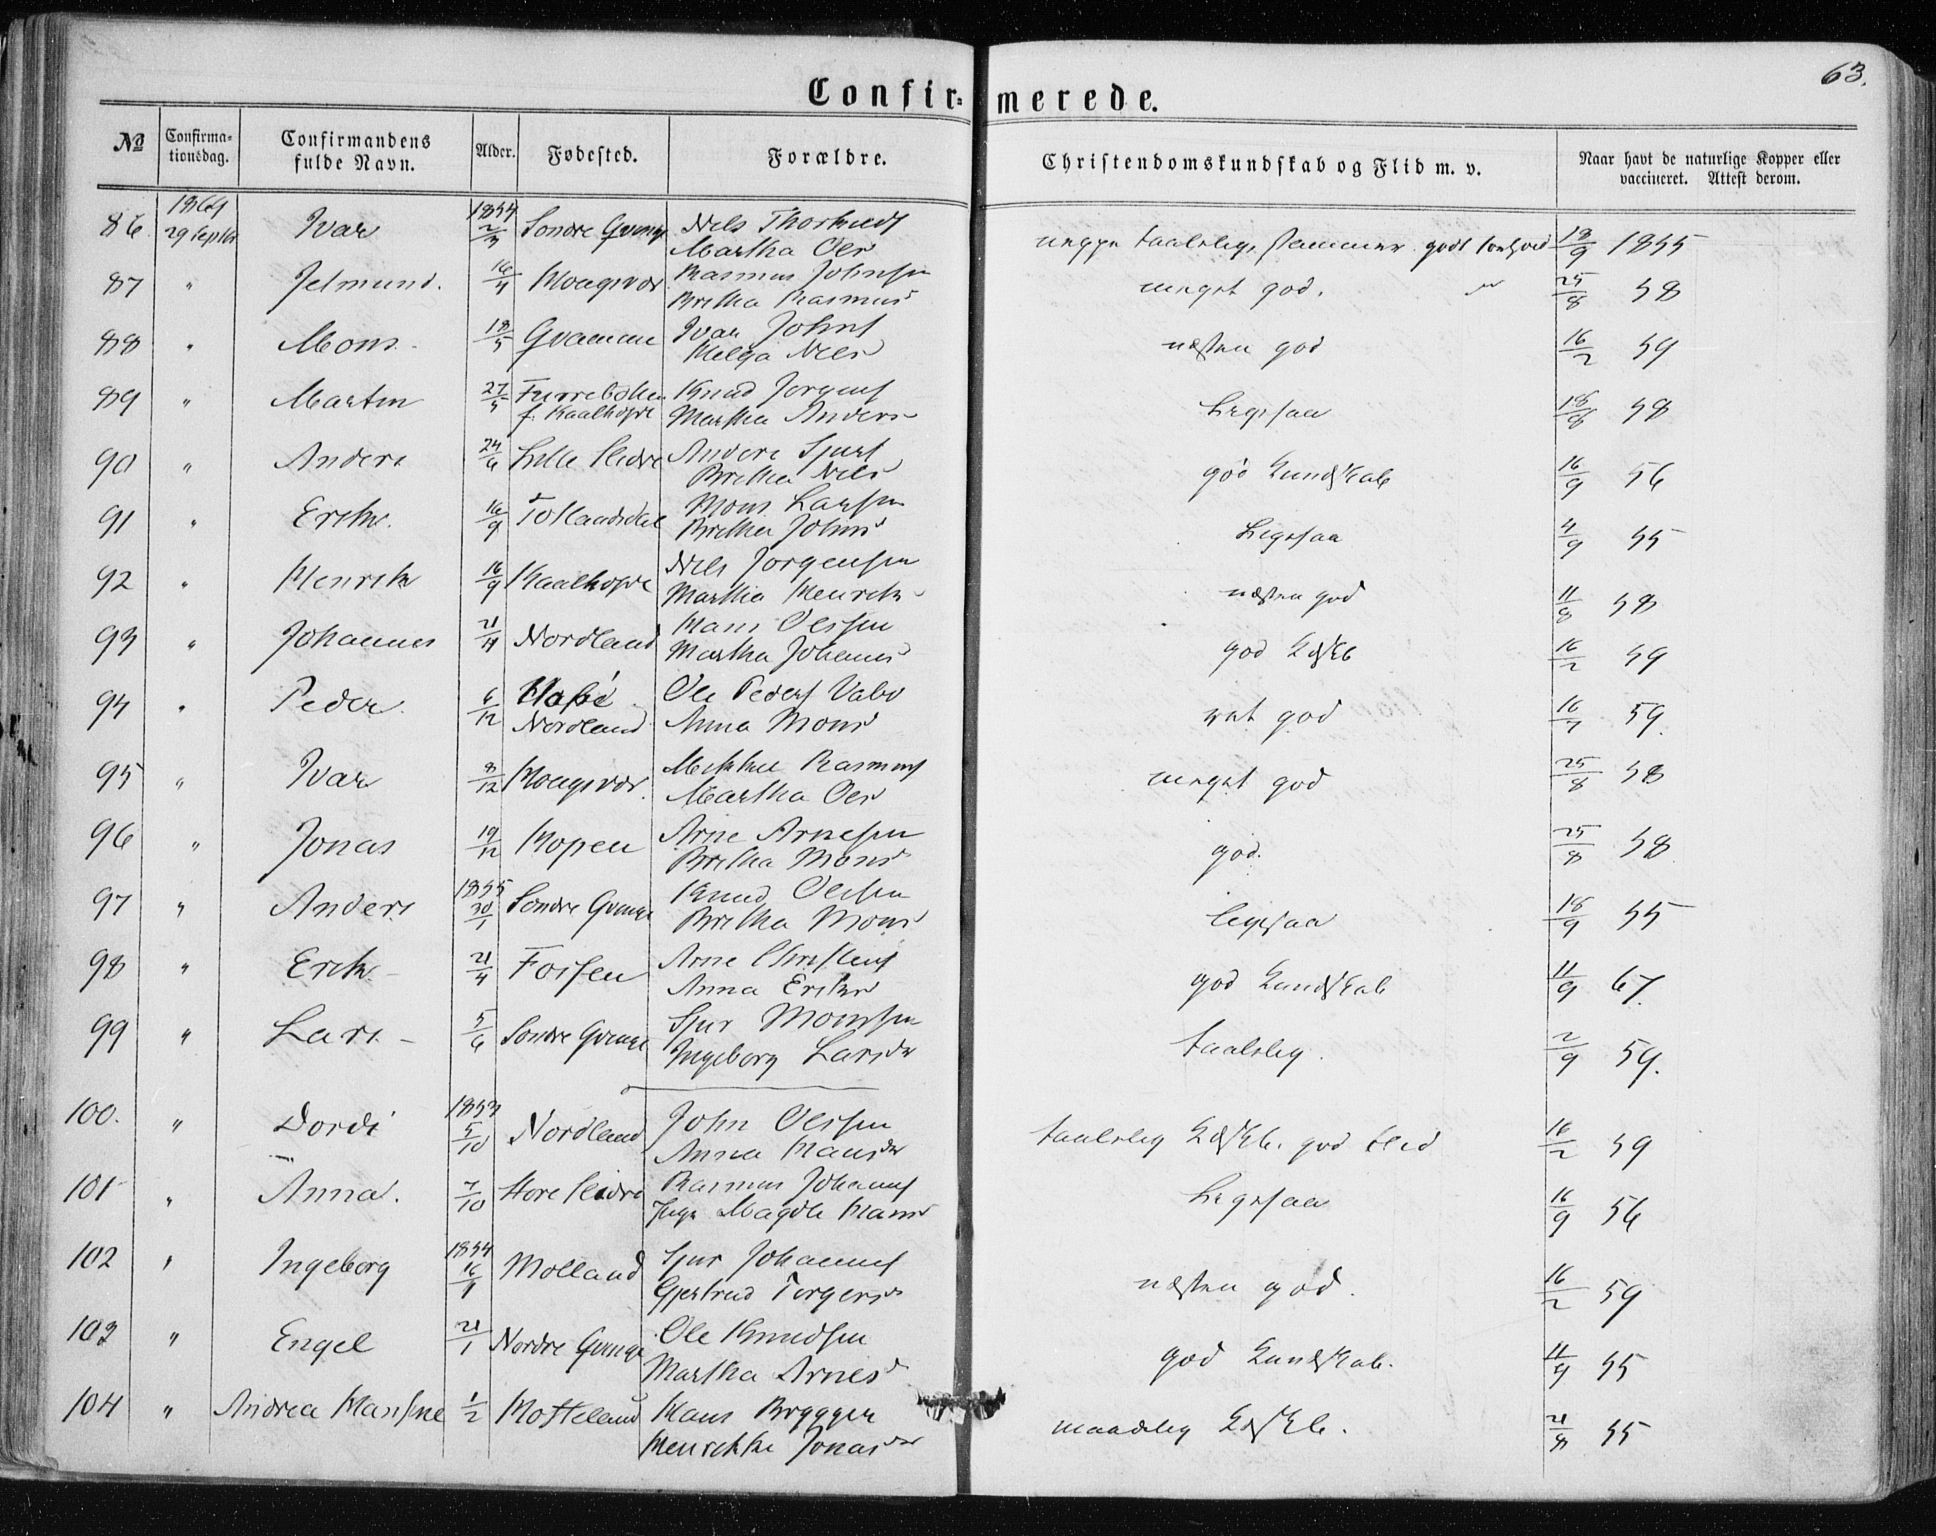 63.
Confir- merede.
No Confirmationsdag. Confirmandens fulde Navn. Alder. Fødested. Forældre. Christendomskundskab og Flid m. v. Naar havt de naturlige Kopper eller vaccineret. Attest derom.
86. 1869 29 Septbr Ivar 1854 Søndre Nils
Martha 18/9 1855
87 " Jelmund. 16/4 Rasmus Johnsen
Britha Rasmusd meget god. " 25/8 58
88 " Mons. 18/5 Ivar Johns
Helga Nilsd næsten god 16/2 59
89 " Martin 27/5 f. Kaalhofde Knud
Martha Andersd ligesaa 18/8 58
90 " Anders 24/6 Lille Anders
Britha Nilsd god Kundskab 16/9 56
91 " Erik. 16/9 Mons Larsen
Britha Johnsd ligesaa 4/9 55
92 " Henrik 16/9 Kaalhofde Nils Jørgensen
Martha Henriksd næsten god 11/8 58
93 " Johannes 21/11 Nordland Hans Olssen
Martha Johansd god 16/2 59
94 " Peder. 6/12 Nordland Ole Peders
Anna Monsd ret god 16/7 59.
95 " Ivar 8/12 Mikkel Rasmus
Martha Olsd meget god 25/8 58
96 " Jonas 19/12 Kopen Arne Arnesen
Britha Monsd god. 25/8 58
97 " Anders 1855 30/1 Søndre Knud Olssen
Britha Monsd ligesaa 18/9 55
98 " Erik 21/4 Fossen Arne
Anna Eriksd god Kundskab 11/9 67.
99 " Lars. 5/6 Søndre Sjur Monssen
Ingeborg Larsdr taalelig. 2/9 59.
100. " Dordi 1853 5/10 Nordland John Olssen
Anna Hansdr taalelig god Flid 16/2 59
101 " Anna. 7/10 Store Rasmus Johannes
Magdl Hansd ligesaa 16/9 56
102 " Ingeborg 1854 16/1 Molland Sjur Johannes
Gjertrud Torgersd næsten god. 16/2 59
103 " Engel 21/1 Nordre Ole Knudsen
Martha Arnesd god Kundskab. 11/9 55
104 " Andrea Hansine 1/2 Hosteland Hans
Jonasdr maadelig 21/8 55